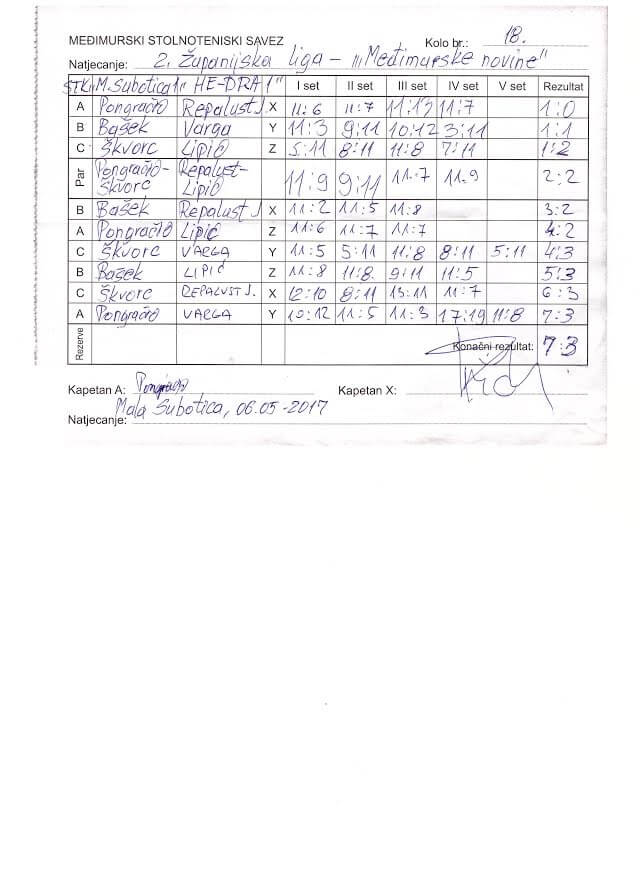 MEĐIMURSKI STOLNOTENISKI SAVEZ Kolo br.: 18.
Natjecanje: 2. Županijska liga - "Međimurske novine"
STK "M. Subotica 1" "HE-DRA 1" I set II set III set IV set V set Rezultat
A Pongračić Repalust J X 11:6 11:7 11:13 11:7 1:0
B Bašek Varga Y 11:3 9:11 10:12 3:11 1:1
C Škvorc Lipić Z 5:11 8:11 11:8 7:11 1:2
Par Pongračić-Škvorc Repalust-Lipić 11:9 9:11 11:7 11:9 2:2
B Bašek Repalust J X 11:2 11:5 11:8 3:2
A Pongračić Lipić Z 11:6 11:7 11:7 4:2
C Škvorc VARGA Y 11:5 5:11 11:8 8:11 5:11 4:3
B Bašek LIPIĆ Z 11:8 11:8 9:11 11:5 5:3
C Škvorc REPALUST J. X 12:10 8:11 13:11 11:7 6:3
A Pongračić VARGA Y 10:12 11:5 11:3 17:19 11:8 7:3
Rezerve Konačni rezultat: 7:3
Kapetan A: Pongračić Kapetan X:
Mala Subotica, 06.05-2017
Natjecanje: